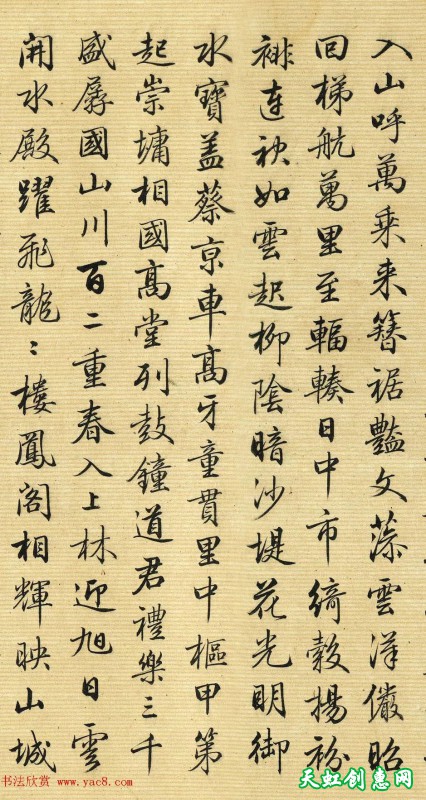 入山呼萬乗来簪裾艷文藻雲漢儼昭
回梯航萬里至輻輳日中市綺縠揚袨
裶連袂如雲起柳陰暗沙堤花光明御
水寶盖蔡京車髙牙童貫里中樞甲第
起崇墉相國髙堂列鼓鐘道君禮樂三千
盛孱國山川百二重春入上林迎旭日雲
開水殿躍飛龍〻樓鳳閣相輝映山城
书法欣赏 www.yac8.com
天虹创惠网